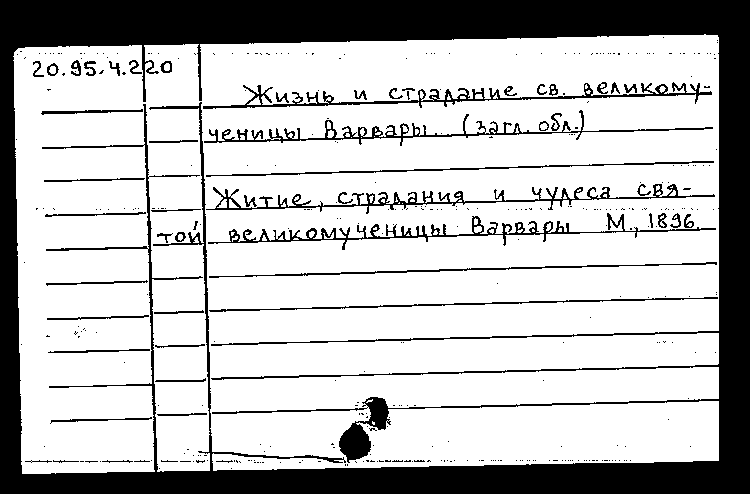 20.95.4.220
Жизнь и страдание св. великому-
ченицы Варвары. (загл. обл.)
Житие, страдания и чудеса свя-
той великомученицы Варвары М., 1896.